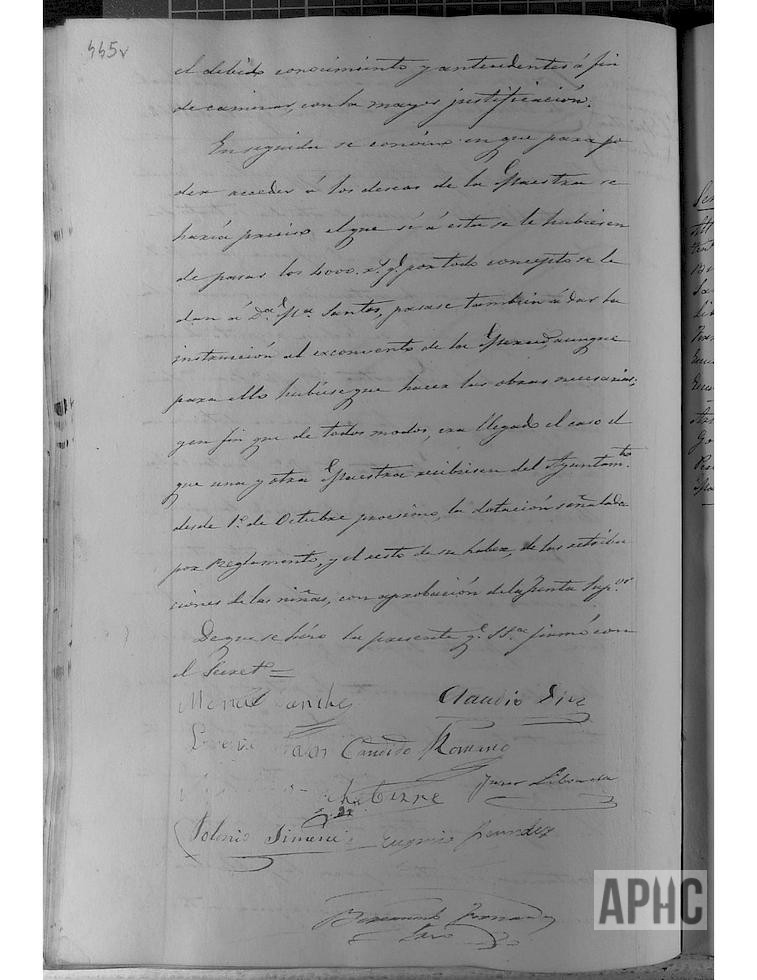 445v
el debido conocimiento y antecedentes á fin
de caminar, con la mayor justificación.
Enseguida se convino en que para po
der acceder á los deseos de la Maestra se
haría preciso el que si á esta se le hubiesen
de pasar los 4000. r.s q.e por todo concepto se le
dan á D.a M.a Santos, pasase tambien á dar la
instrucción al exconvento de la Merced, aunque
para ello hubiese que hacer las obras necesarias;
y en fin que de todos modos, era llegado el caso el
que una y otra Maestra recibiesen del Ayuntam.to
desde 1.o de Octubre procsimo, la dotación señalada
por Reglamento, y el resto de su haber, de las retribu
ciones de las niñas, con aprobación de la Junta Sup.or
De que se hizo la presente q.e SS.a firmó con
el Secret.o =
Manuel Sanchez Claudio Diez
Candido Romano
Juan
Polonio Jimenez Eugenio
Bernardo Fernandez
APHC